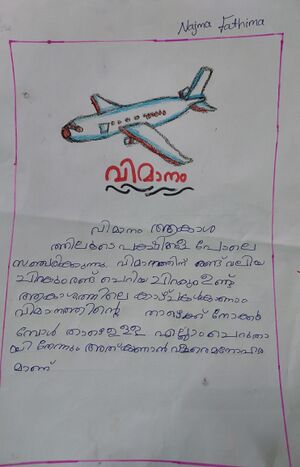 Najma Fathima
വിമാനം
വിമാനം ആകാശ
ത്തിലൂടെ പക്ഷികളെ പോലെ
സഞ്ചരിക്കുന്നു. വിമാനത്തിന് രണ്ട് വലിയ
ചിറകും രണ്ട് ചെറിയ ചിറകും ഉണ്ട്
ആകാശത്തിലെ കാഴ്ചകൾ കാണാം
വിമാനത്തിന്റെ താഴേക്ക് നോക്കു
മ്പോൾ താഴെ ഉള്ള എല്ലാം ചെറുതാ
യി തോന്നും അത് കാണാൻ വളരെ മനോഹര
മാണ്